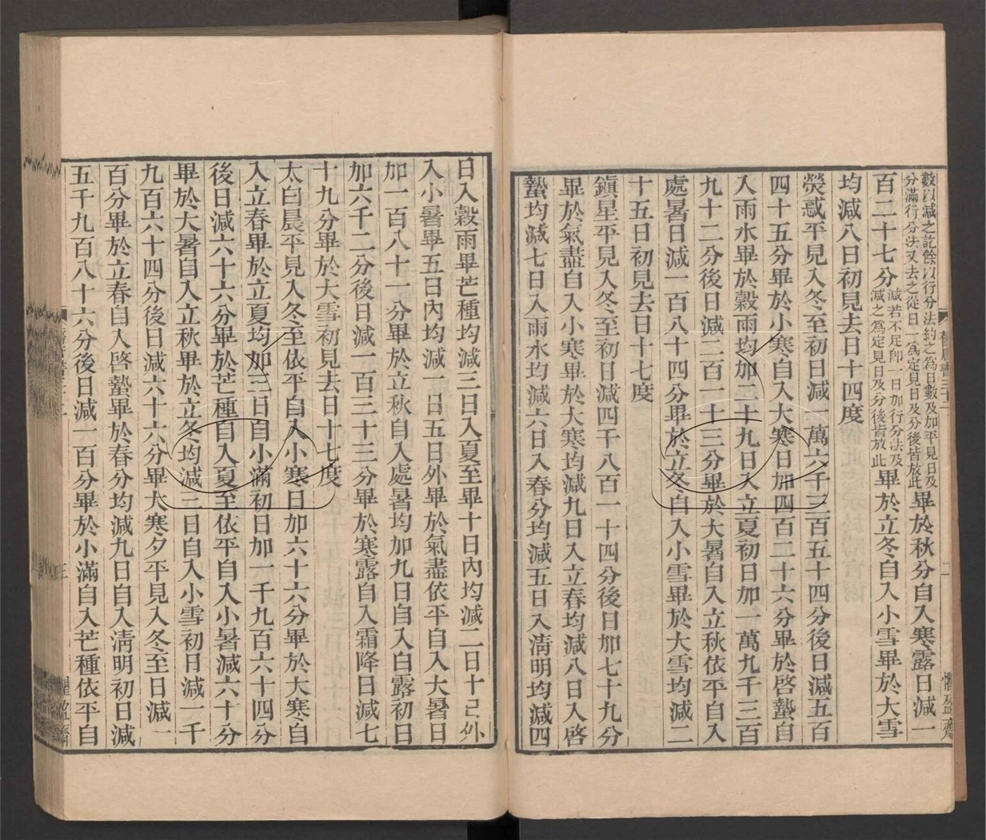 數以減之訖餘以行分法約之為日數及加平見日及
分滿行分法又去之從日一為定見日及分後皆放此畢於秋分自入寒露日減一
百二十七分減若不足即一日加行分法及減之為定見日及分後皆放此畢於立冬自入小雪畢於大雪
均減八日初見去日十四度
熒惑平見入冬至初日減一萬六千三百五十四分後日減五百
四十五分畢於小寒自入大寒日加四百二十六分畢於啓蟄自
入雨水畢於穀雨均加二十九日入立夏初日加一萬九千三百
九十二分後日減二百一十三分畢於大暑自入立秋依平自入
處暑日減一百八十四分畢於立冬自入小雪畢於大雪均減二
十五日初見去日十七度
鎮星平見入冬至初日減四千八百一十四分後日加七十九分
畢於氣盡自入小寒畢於大寒均減九日入立春均減八日入啓
蟄均減七日入雨水均減六日入春分均減五日入淸明均減四
日入穀雨畢芒種均減三日入夏至畢十日內均減二日十日外
入小暑畢五日內均減一日五日外畢於氣盡依平自入大暑日
加一百八十一分畢於立秋自入處暑均加九日自入白露初日
加六千二分後日減一百三十三分畢於寒露自入霜降日減七
十九分畢於大雪初見去日十七度
太白晨平見入冬至依平自入小寒日加六十六分畢於大寒自
入立春畢於立夏均加三日自小滿初日加一千九百六十四分
後日減六十六分畢於芒種自入夏至依平自入小暑減六十分
畢於大暑自入立秋畢於立冬均減三日自入小雪初日減一千
九百六十四分後日減六十六分畢大寒夕平見入冬至日減一
百分畢於立春自入啓蟄畢於春分均減九日自入淸明初日減
五千九百八十六分後日減一百分畢於小滿自入芒種依平自